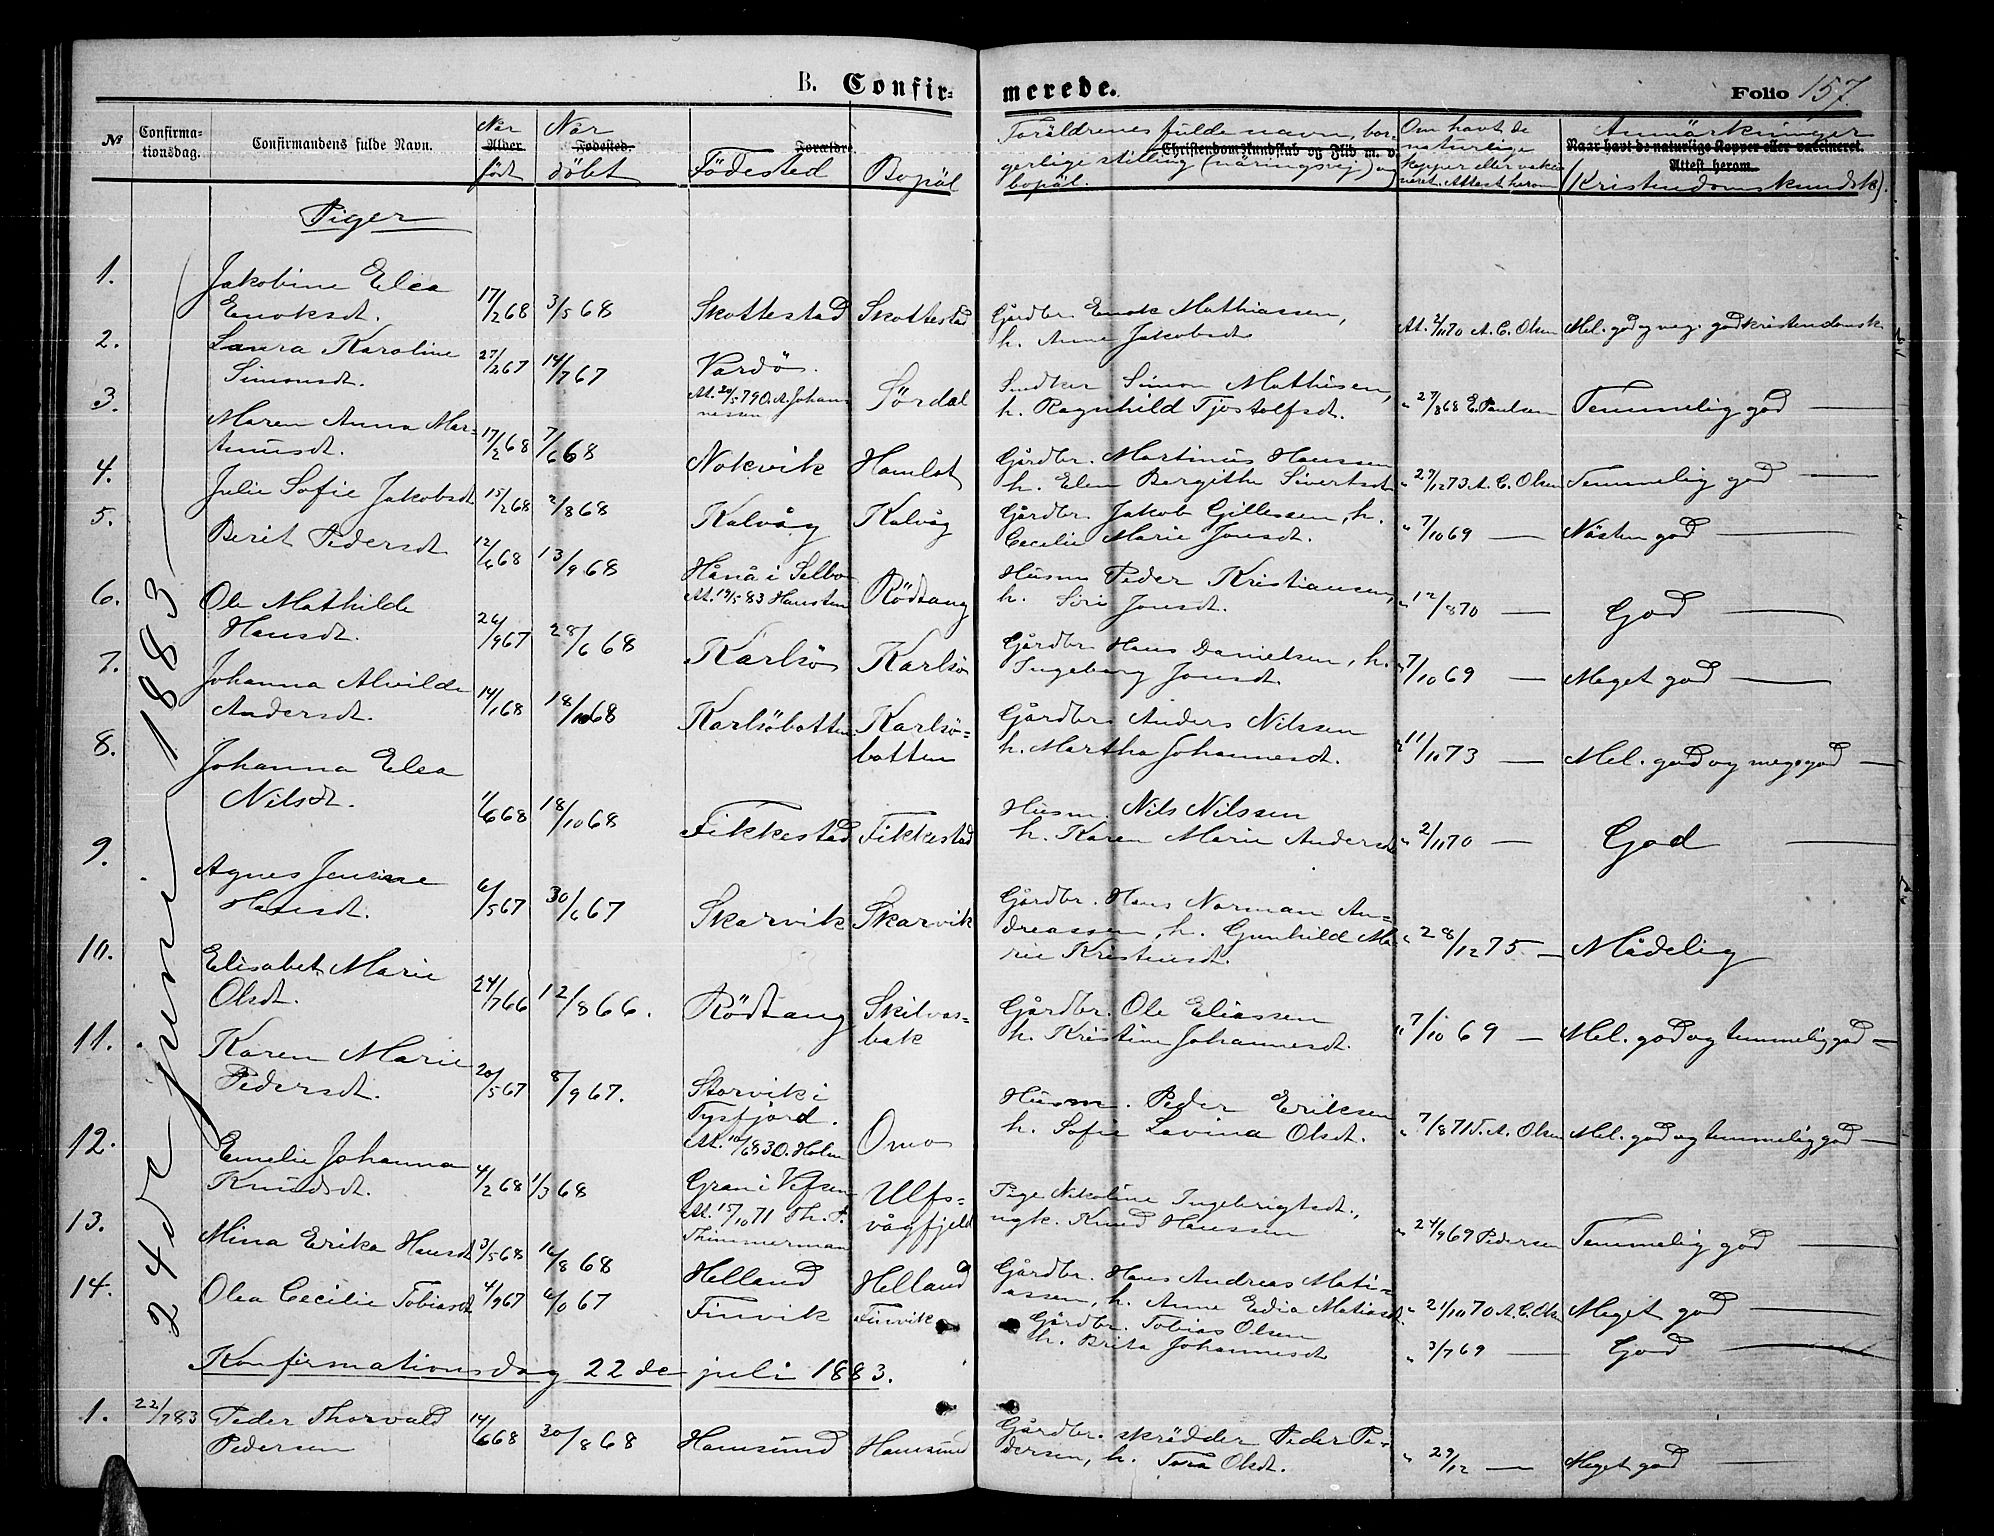 B. Confir-
merede.
Folio 157
№
Confirma-
tionsdag.
Confirmandens fulde Navn.
Når
Alder.
født
Når
Fødested.
döbt
Forældre.
Födested
Bopäl
Foräldrenes fulde navn, bor-
Christendomskundskab og Flid m. v.
gerlige stilling (näringsvej) og
bopäl.
Om havt de
naturlige
kopper eller vakci-
neret. Attest herom
Anmärkninger
Naar havt de naturlige Kopper eller vaccineret.
Attest herom.
(Kristendomskundsk).
Piger
24de juni 1883
1.
Jakobine Elea
Enoksdt.
17/2 68
3/5 68
Skottestad
Skottestad
Gårdbr. Enok Mathiassen,
h. Anne Jakobsdt
At. 2/11 70 A. C. Olsen
Mel. god og meg. god kristendomsk
2.
Laura Karoline
Simonsdt.
27/2 67
14/7 67
Vardö.
At. 20/5 79 O. A. Johan-
nessen
Sördal
Snedker Simon Mathisen,
h. Ragnhild Tjostolfsdt.
" 27/8 68 E. Paulsen
Temmelig god
3.
Maren Anna Mar-
tinusdt.
17/2 68
7/6 68
Nokvik
Hamlot
Gårdbr. Martinus Hanssen
h. Elen Bergithe Sivertsdt
" 29/12 73 A. C. Olsen
Temmelig god
4.
Julie Sofie Jakobsdt
15/2 68
2/8 68
Kalvåg
Kalvåg
Gårdbr. Jakob Gillessen, h.
Cecilie Marie Jonsdt.
" 7/10 69
Nästen god
5.
Berit Pedersdt
12/6 68
13/9 68
Hånå i Selbo
At. 19/5 83 Hansteen
Rödtang
Husm Peder Kristiansen,
h. Siri Jonsdt.
" 12/8 70
God
6.
Ole Mathilde
Hansdt.
26/9 67
28/6 68
Karlsö
Karlsö
Gårdbr Hans Danielsen, h.
Ingeborg Jonsdt.
" 7/10 69
Meget god
7.
Johanna Alvilde
Andersdt.
14/1 68
18/10 68
Karlsöbotten
Karlsö-
botten
Gårdbr Anders Nilssen
h. Martha Johannesdt.
" 11/11 73
Mel. god og meg. god
8.
Johanna Elea
Nilsdt.
1/6 68
18/10 68
Fikkestad
Fikkestad
Husm. Nils Nilssen
h. Karen Marie Andersdt
" 2/11 70
God
9.
Agnes Jensine
Hansdt.
6/5 67
30/6 67
Skarvik
Skarvik
Gårdbr. Hans Norman An-
dreassen, h. Gunhild Ma-
rie Kristensdt.
" 28/12 75
Mådelig
10.
Elisabet Marie
Olsdt.
24/7 66
12/8 66.
Rödtang
Skilvas-
bak
Gårdbr. Ole Eliassen
h. Kristine Johannesdt.
" 7/10 69
Mel. god og temmelig god
11.
Karen Marie
Pedersdt.
20/5 67
8/9 67.
Storvik i
Tysfjord.
At. 10/6 83 O. Holm
Omo
Husm. Peder Eriksen
h. Sofie Lovina Olsdt.
" 7/8 71 T. A. Olsen
Mel. god og temmelig god
12.
Emelie Johanna
Knudsdt.
4/2 68
1/3 68
Gran i Vefsen
At. 15/10 71 Th. P.
Thimmerman
Ulfs-
vågfjeld
Pige Nikoline Ingebrigtsdt.,
ugk. Knud Hanssen
" 24/9 69 Pedersen
Temmelig god
13.
Mina Erika Hansdt
3/5 68
16/8 68
Helland
Helland
Gårdbr. Hans Andreas Mati-
assen, h. Anne Edia Matiasdt.
" 21/10 70 A. C. Olsen
Meget god
14.
Olea Cecilie Tobiasdt
4/9 67
6/10 67
Finvik
Finvik
Gårdbr. Tobias Olsen
h. Brita Johannesdt
" 3/7 69
God
Konfirmationsdag 22de juli 1883.
1.
22/7 83
Peder Thorvald
Pedersen
14/6 68
30/8 68
Hamsund
Hamsund
Gårdbr. skrädder Peder Pe-
dersen, h. Tora Olsdt.
" 29/12
Meget god